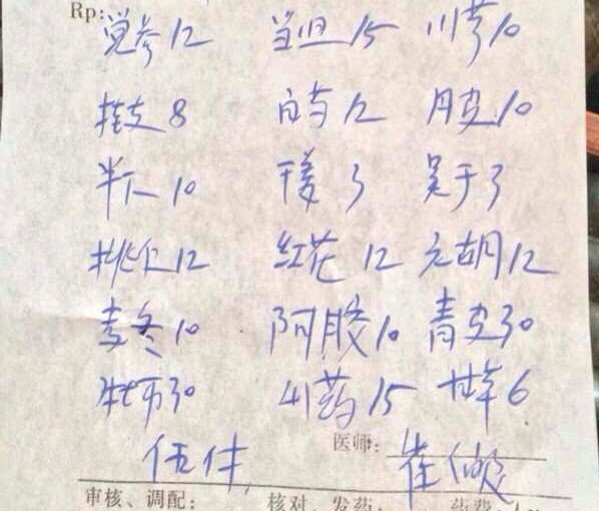 Rp:
党参12 当归15 川芎10
桂支8 白芍12 丹皮10
半下10 干姜3 吴于3
桃仁12 红花12 元胡12
麦冬10 阿胶10 青皮30
牡蛎30 山药15 甘草6
伍付
医师: 崔
审核、调配: 核对、发药: 药费: